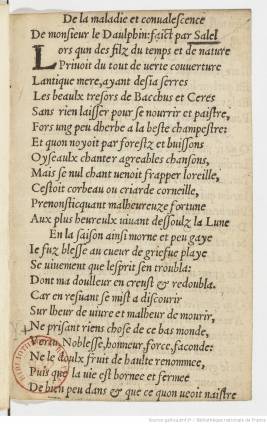 De la maladie et conualescence
De monsieur le Daulphin: faict par Salel
Lors qun des filz du temps et de nature
Priuoit du tout de uerte couuerture
Lantique mere, ayant desia serres
Les beaulx tresors de Bacchus et Ceres
Sans rien laisser pour se nourrir et paistre,
Fors ung peu dherbe a la beste champestre:
Et quon noyoit par forestz et buissons
Oyseaulx chanter agreables chansons,
Mais se nul chant uenoit frapper loreille,
Cestoit corbeau ou criarde corneille,
Prenonsticquant malheureuze fortune
Aux plus heureulx uiuant dessoulz la Lune
En la saison ainsi morne et peu gaye
Ie fuz blesse au cueur de griefue playe
Se uiuement que lesprit sen troubla:
Dont ma douleur en creust & redoubla.
Car en resuant se mist a discourir
Sur lheur de uiure et malheur de mourir,
Ne prisant riens chose de ce bas monde,
Vertu, Noblesse, honneur, force, faconde:
Ne le doulx fruict de haulte renommee,
Puis que la uie est bornee et fermee
De bien peu dans & que ce quon uoit naistre